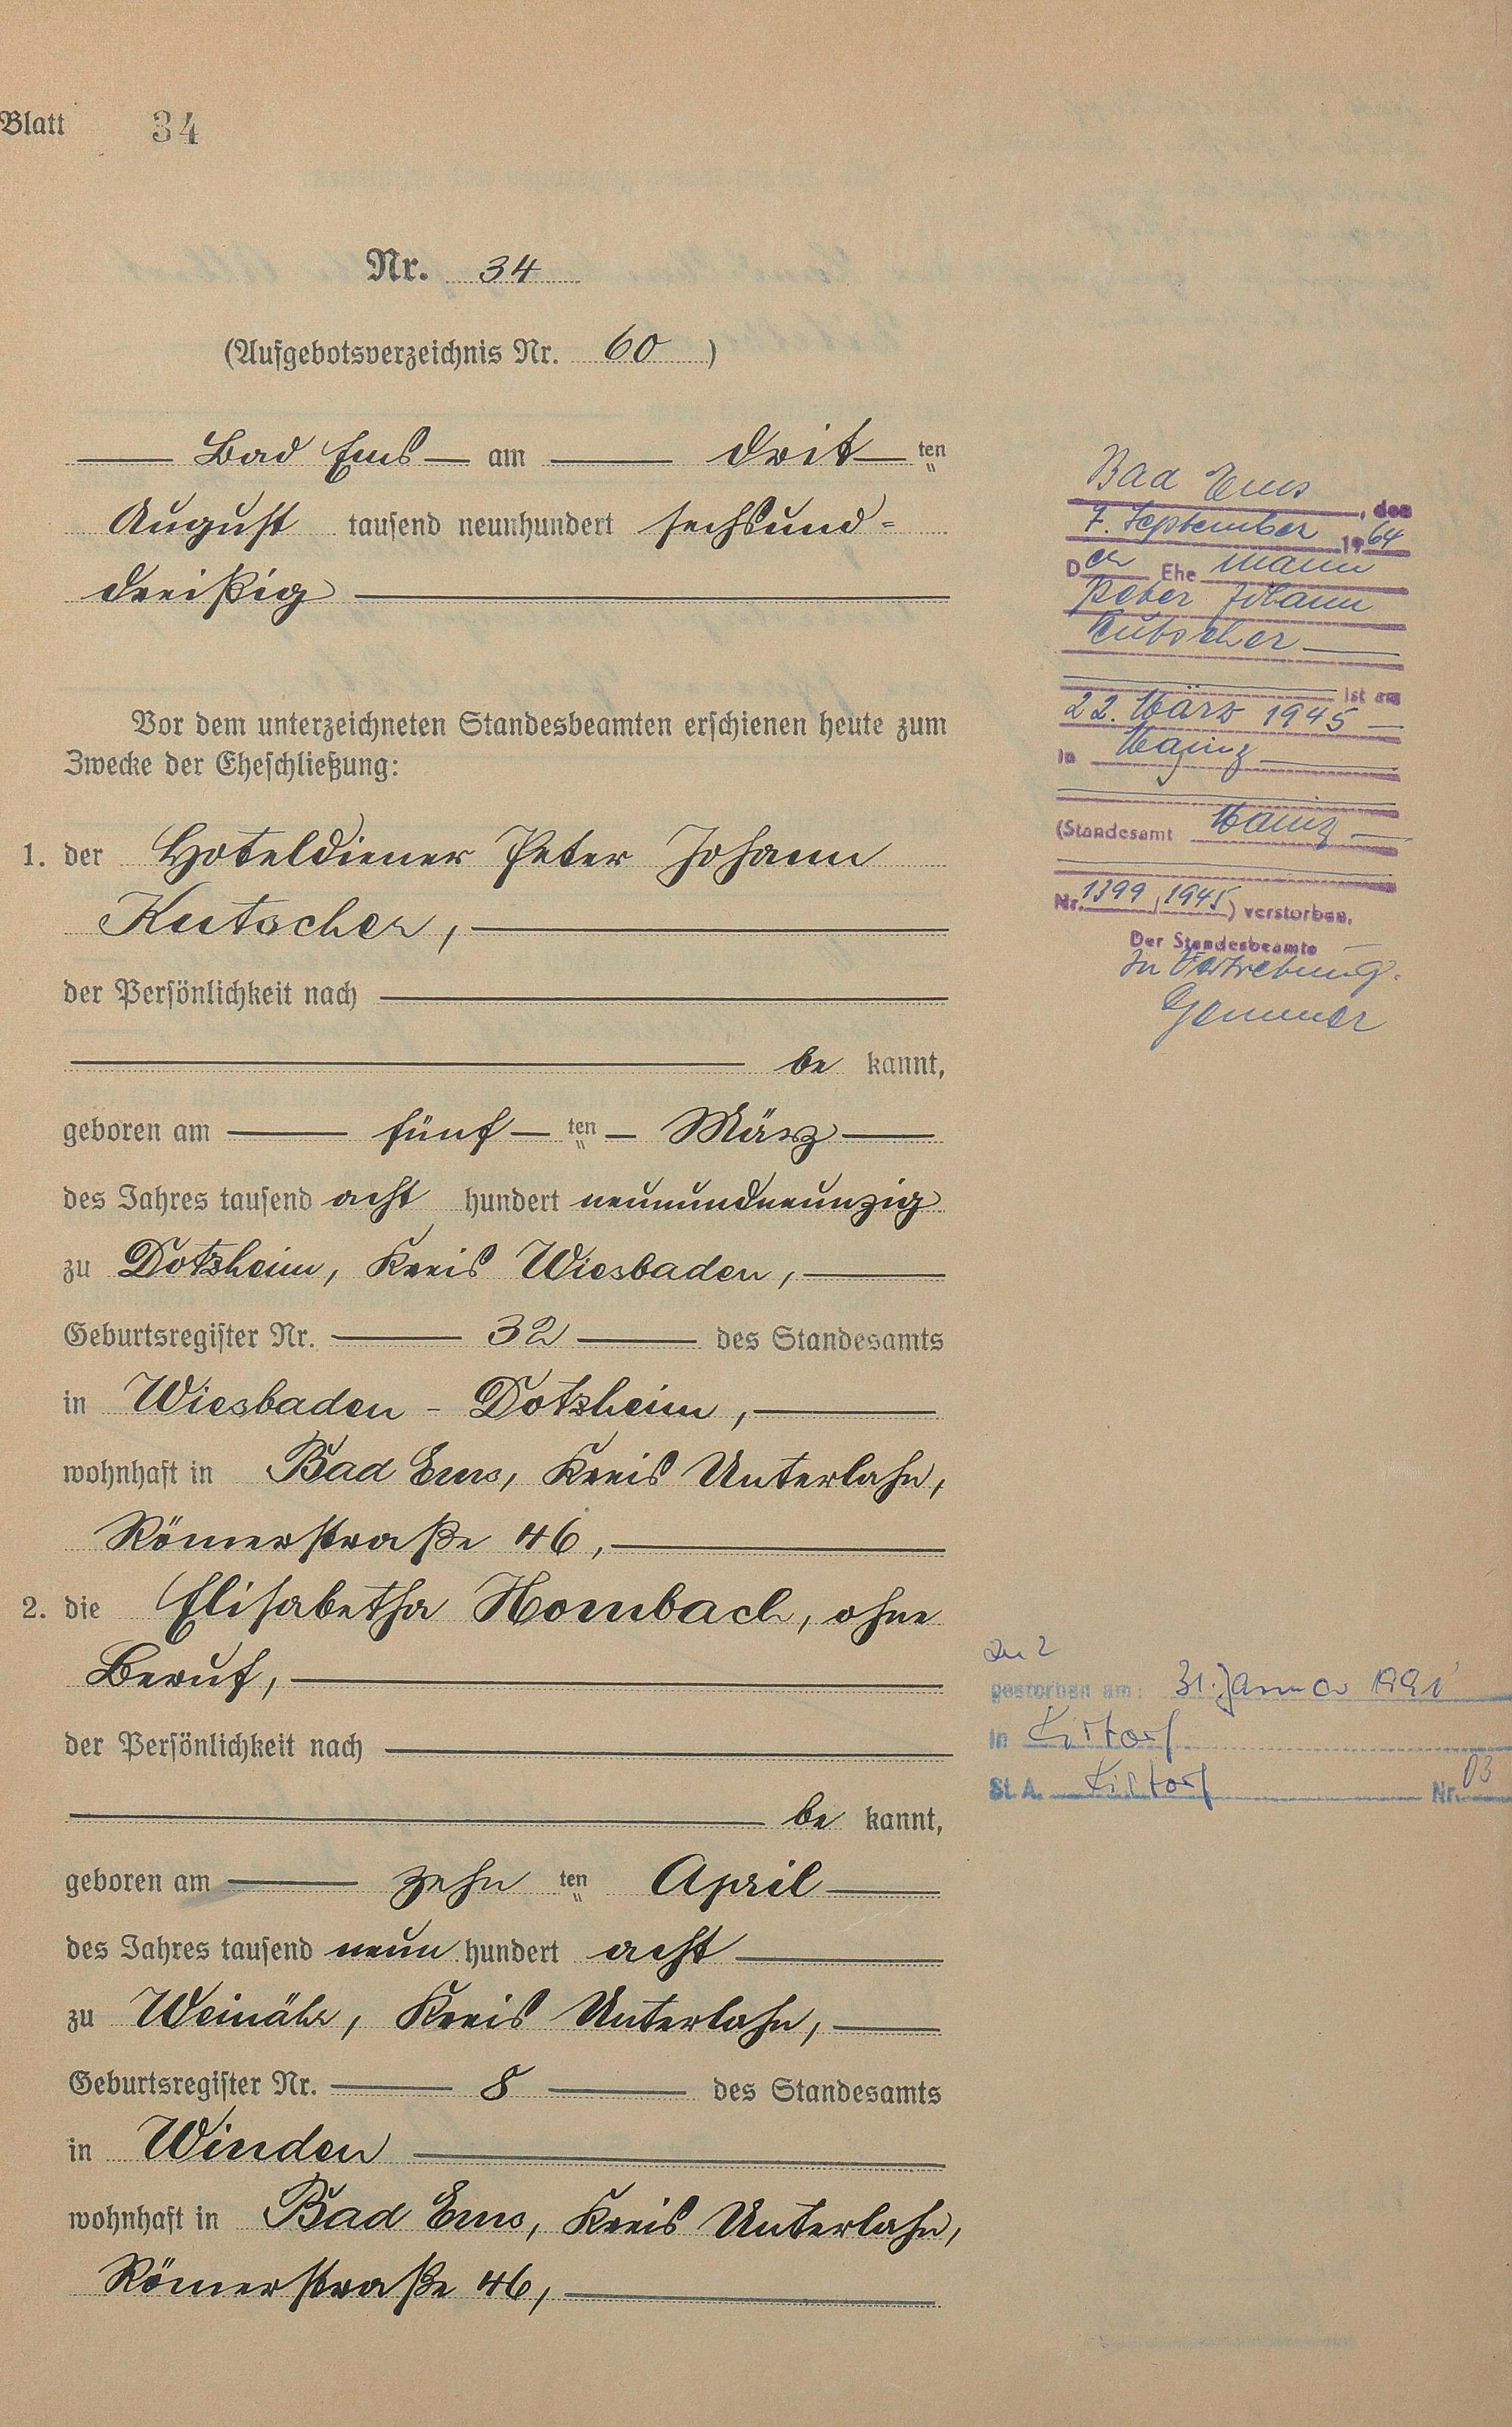 Blatt 34
Nr. 34
(Aufgebotsverzeichnis Nr. 60)
Bad Ems am drit ten
August tausend neunhundert sechsund=
dreißig
Vor dem unterzeichneten Standesbeamten erschienen heute zum
Zwecke der Eheschließung:
1. der Hoteldiener Peter Johann
Kutscher,
der Persönlichkeit nach
be kannt,
geboren am fünf ten März
des Jahres tausend acht hundert neunundneunzig
zu Dotzheim, Kreis Wiesbaden,
Geburtsregister Nr. 32 des Standesamts
in Wiesbaden - Dotzheim,
wohnhaft in Bad Ems, Kreis Unterlahn,
Römerstraße 46,
2. die Elisabetha Hombach, ohne
Beruf,
der Persönlichkeit nach
be kannt,
geboren am zehn ten April
des Jahres tausend neun hundert acht
zu Weinähr, Kreis Unterlahn,
Geburtsregister Nr. 8 des Standesamts
in Winden
wohnhaft in Bad Ems, Kreis Unterlahn,
Römerstraße 46,
Bad Ems, den
7. September 1964
Der Ehe mann
Peter Johann
Kutscher
ist am
22. März 1945
in Mainz
(Standesamt Mainz
Nr. 1399, 1945) verstorben.
Der Standesbeamte
In Vertretung.
Zu 2
gestorben am: 31. Januar 1991
in Kirtorf
St. A. Kirtorf Nr. 03